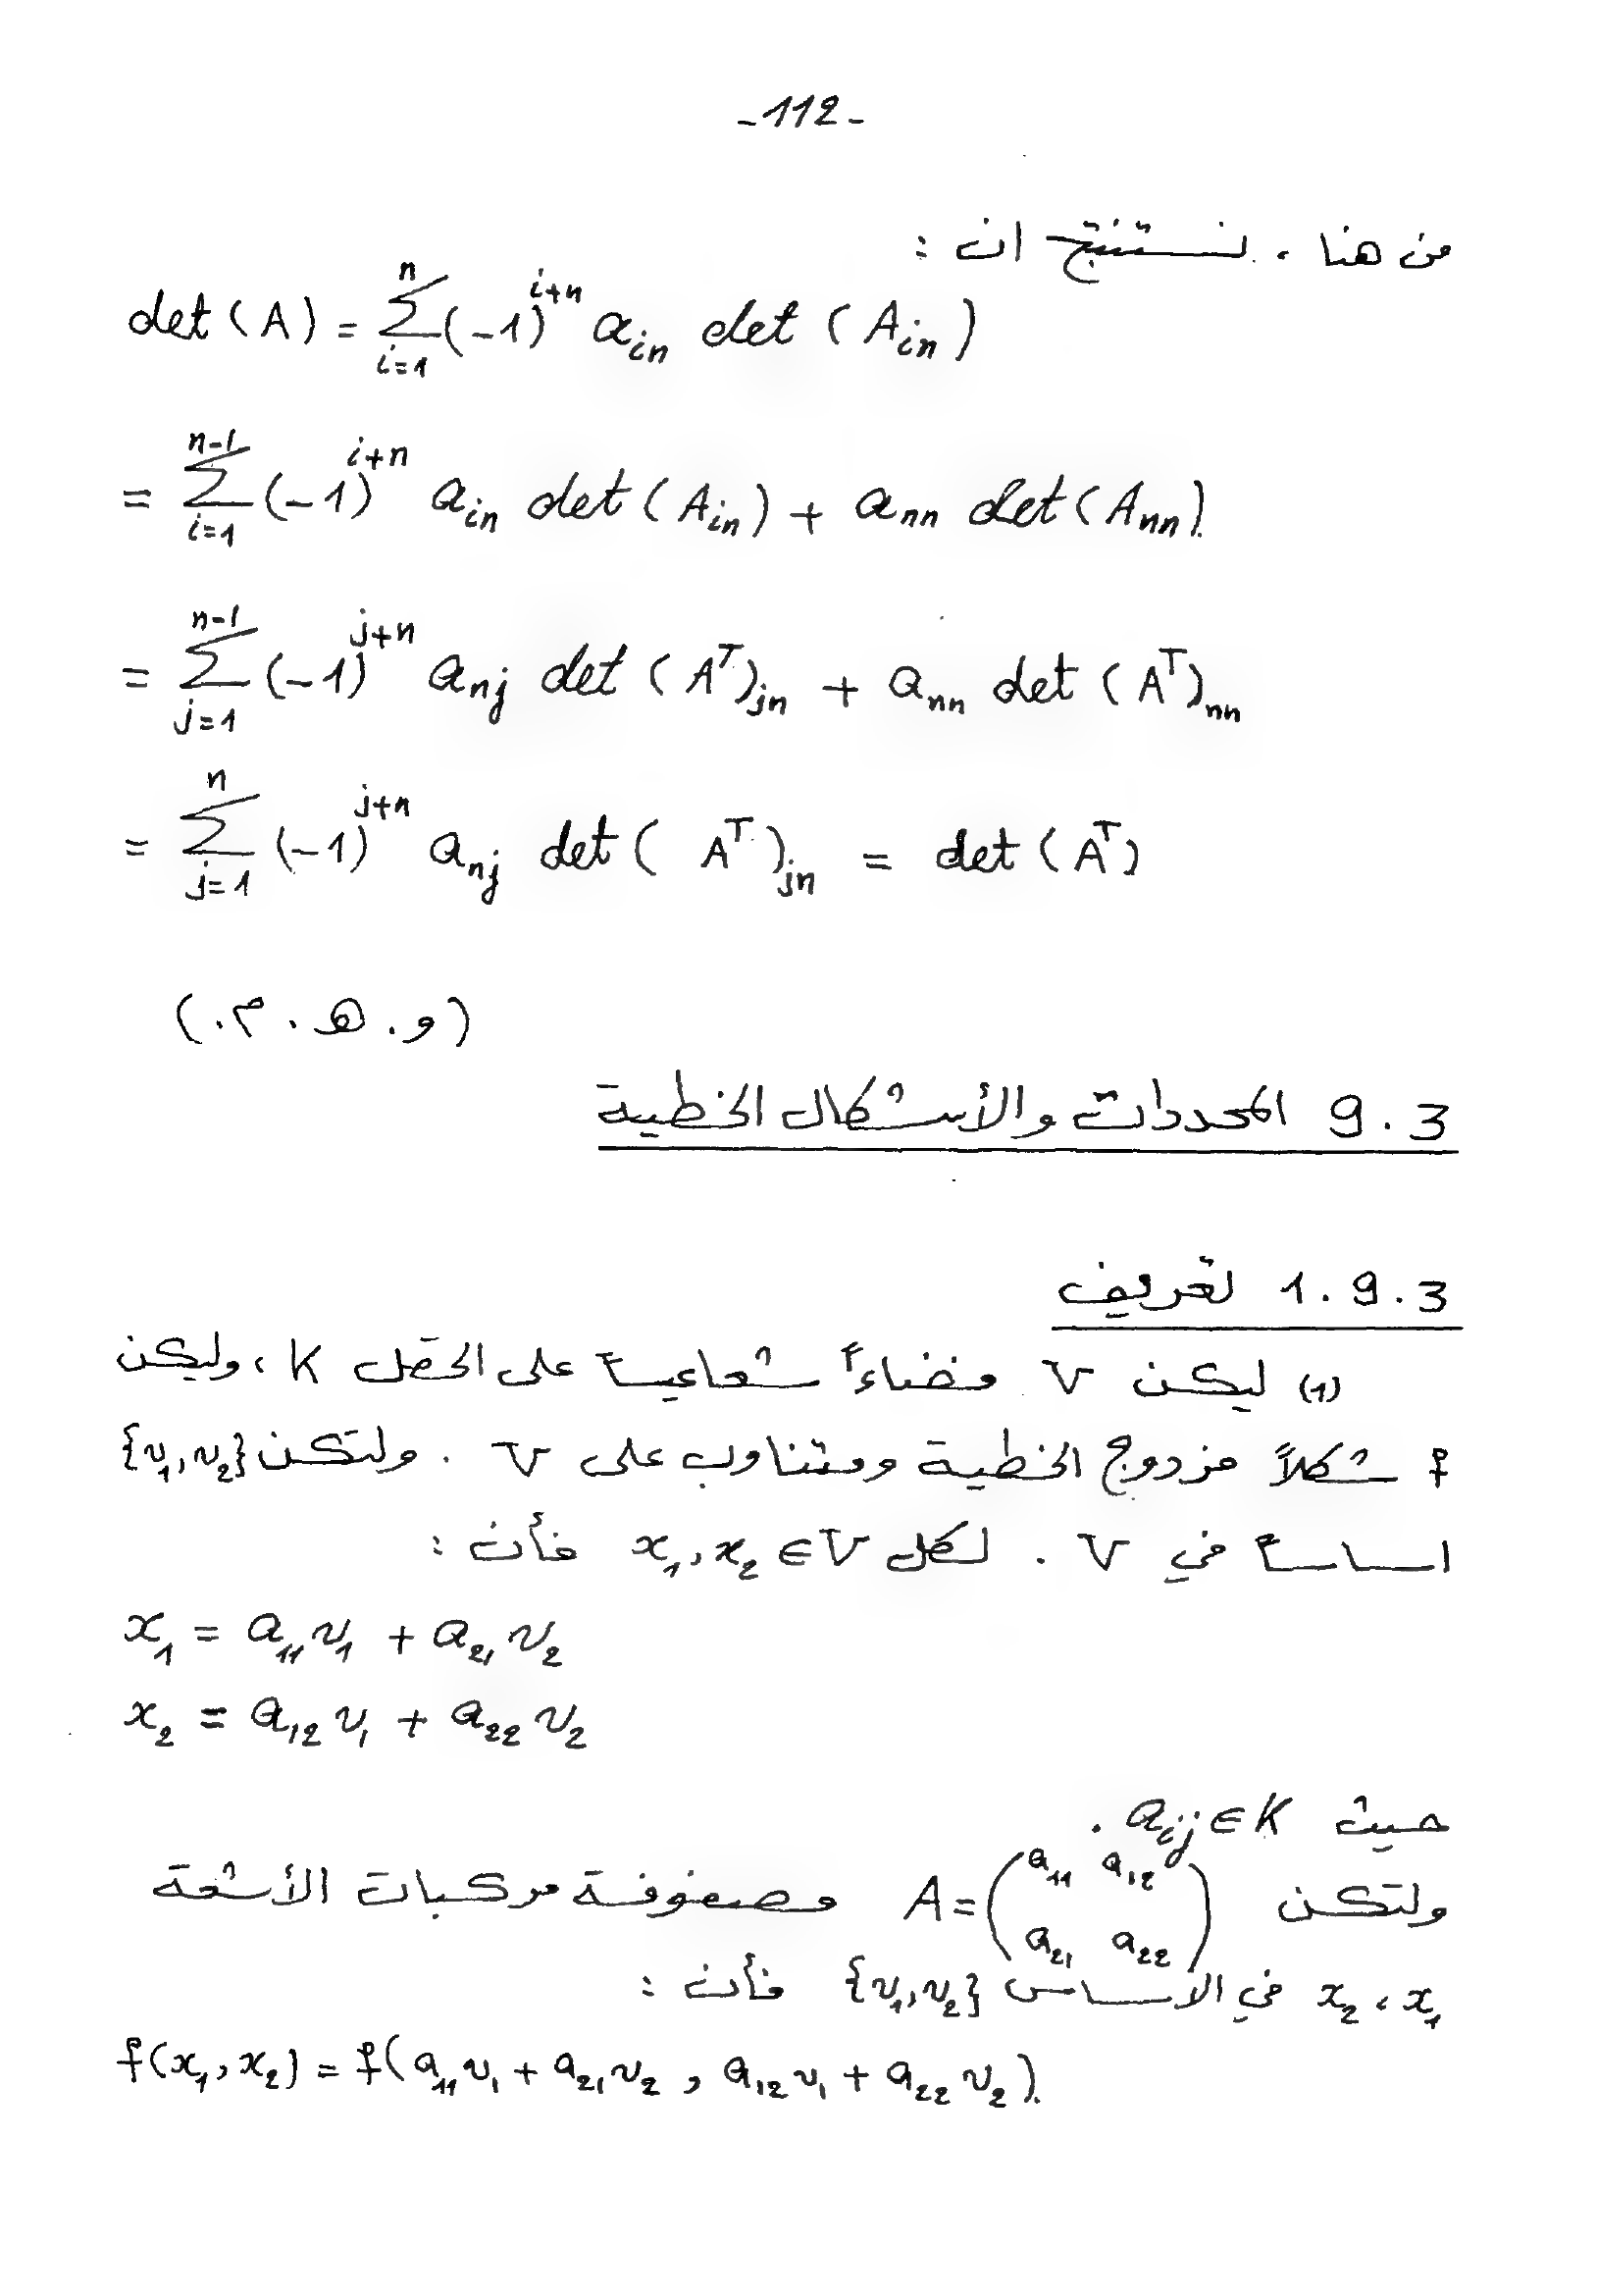 -112-
من هنا ، نستنتج ان :
det(A) = \sum_{i=1}^{n} (-1)^{i+n} a_{in} det(A_{in})
= \sum_{i=1}^{n-1} (-1)^{i+n} a_{in} det(A_{in}) + a_{nn} det(A_{nn})
= \sum_{j=1}^{n-1} (-1)^{j+n} a_{nj} det(A^T)_{jn} + a_{nn} det(A^T)_{nn}
= \sum_{j=1}^{n} (-1)^{j+n} a_{nj} det(A^T)_{jn} = det(A^T)
(و. ه. م.)
9.3 المحددات والأشكال الخطية
1.9.3 تعريف
(1) ليكن V فضاءً شعاعياً على الحقل K ، وليكن
f شكلاً مزدوج الخطية ومتناوب على V . ولتكن {v_1, v_2}
اساساً في V . لكل x_1, x_2 ∈ V فأن :
x_1 = a_{11} v_1 + a_{21} v_2
x_2 = a_{12} v_1 + a_{22} v_2
حيث a_{ij} ∈ K .
ولتكن A = \begin{pmatrix} a_{11} & a_{12} \\ a_{21} & a_{22} \end{pmatrix} مصفوفة مركبات الأشعة
x_1 ، x_2 في الاساس {v_1, v_2} فأن :
f(x_1, x_2) = f(a_{11} v_1 + a_{21} v_2 , a_{12} v_1 + a_{22} v_2)